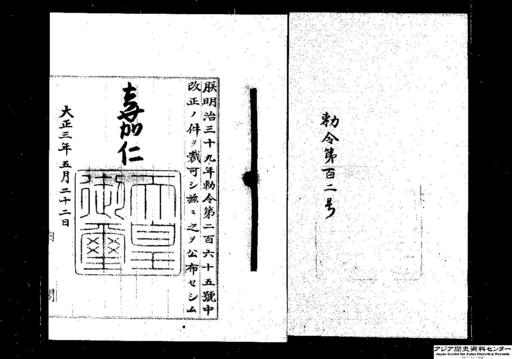 勅令第百二号
朕明治三十九年勅令第二百六十五號中
改正ノ件ヲ裁可シ茲ニ之ヲ公布セシム
嘉仁
天皇御璽
大正三年五月二十二日
内閣
アジア歴史資料センター
Japan Center for Asian Historical Records